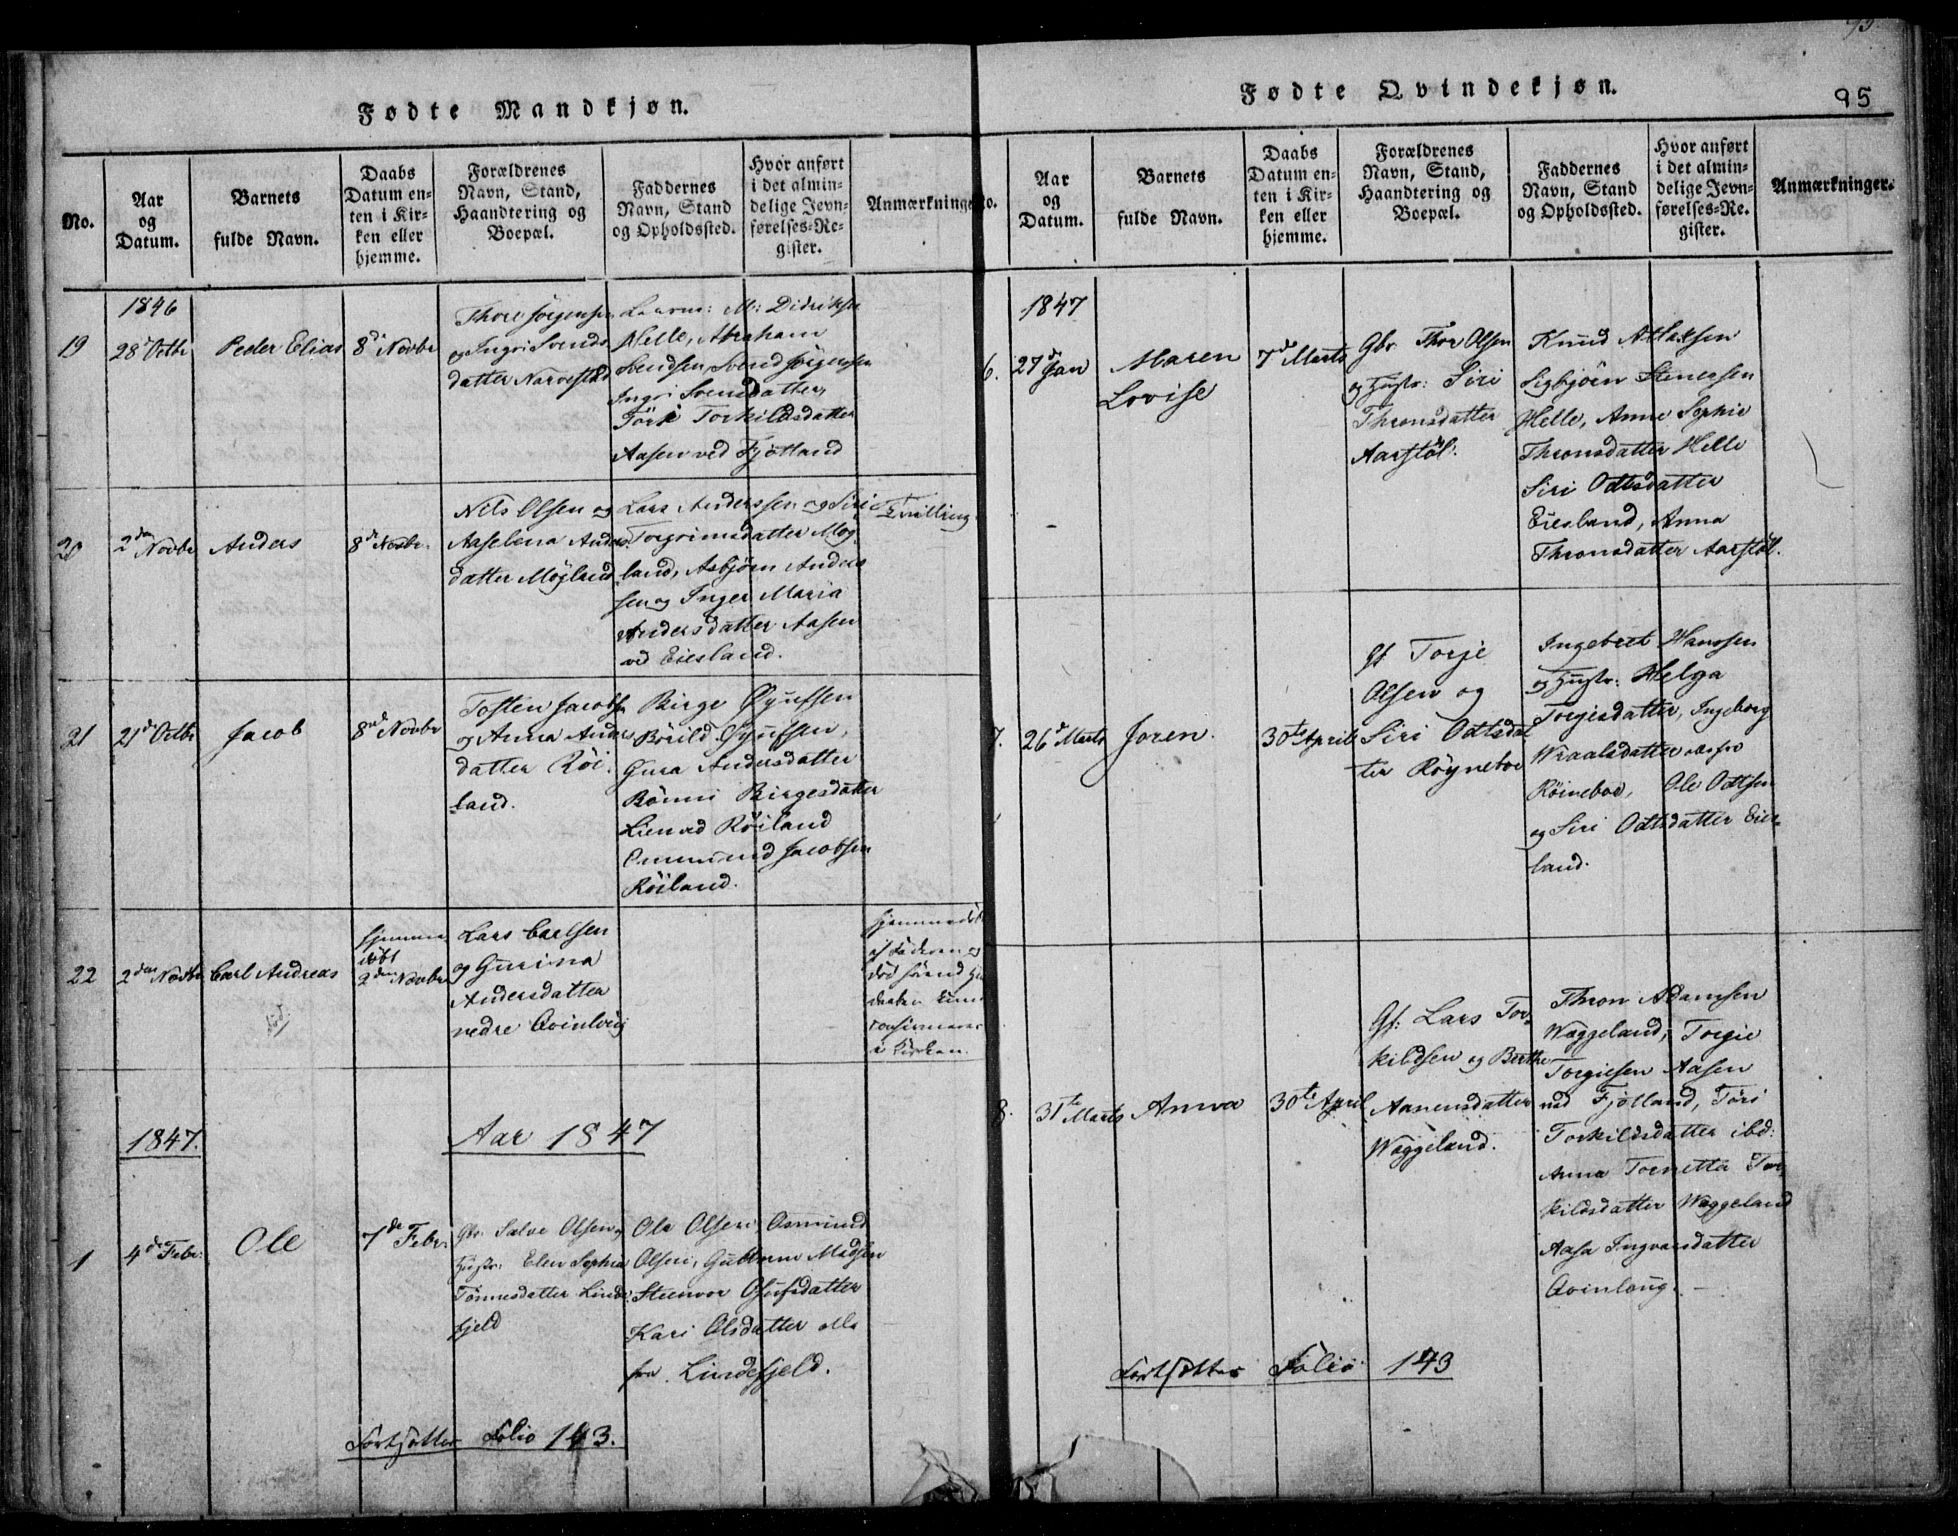 Fødte Mandkjøn.
No.
Aar
og
Datum.
Barnets
fulde Navn.
Daabs
Datum en-
ten i Kir-
ken eller
hjemme.
Forældrenes
Navn, Stand,
Haandtering og
Boepæl.
Faddernes
Navn, Stand
og Opholdssted.
Hvor anført
i det almin-
delige Jevn-
førelses-Re-
gister.
Anmærkninge
1846
19
28 Octbr
Peder Elias
8d Novbr
Thore Jörgensen
og Ingri Svends
datter Narvestad
M: Didriksen
Helle, Abraham
Svendsen, Svend Jörgensen
Ingri Svensdatter,
Torkildsdatter
Aasen ved Fjotland
20
2den Novbr
Anders
8d Novbr.
Nils Olsen og
Aaselena Anders
datter Mögland
Lars Anderssen og Siri
Torgrimsdatter Mög
land, Asbjörn Anders
sen og Inger Maria
Andersdatter Aasen
ved Eiesland.
Tvilling
21
21d Octbr
Jacob
8nd Novbr
Tosten Jacobsen
og Anna Anders
datter Röi
land.
Birge Öyufsen
Börild Öyufsen,
Gura Andersdatter
Rönni Birgesdatter
Lien ved Röiland
Ommund Jacobsen
Röiland.
22
2den Novbr
Carl Andreas
död
hjemme
döbt
2den Novbr
Lars Carlsen
og Gurina
Andersdatter
nedre Qvinlöug
hjemmedöbt
af Faderen og
död förend
daaben kunde
confirmeres
i Kirken.
1847.
Aar 1847
1
4de Febr:
Ole
7de Febr:
Gbr: Salve Olsen og
Hustr: Elen Sophia
Tönnesdatter Linde
fjeld
Ole Olsen, Osmund
Olsen, Gubbrun Madsen
Steenvor Osufsdatter
Kari Olsdatter alle
fra Lindefjeld.
Fortsætter Folio 143.
93.
Fødte Qvindekjøn.
95
No.
Aar
og
Datum.
Barnets
fulde Navn.
Daabs
Datum en-
ten i Kir-
ken eller
hjemme.
Forældrenes
Navn, Stand,
Haandtering og
Boepæl.
Faddernes
Navn, Stand
og Opholdssted.
Hvor anført
i det almin-
delige Jevn-
førelses-Re-
gister.
Anmærkninger.
1847
6.
27de Jan
Maren
Lovise
7de Marts
Gbr Thor Olsen
og Hustr: Siri
Thronsdatter
Aarstöl.
Knud Atlaksen
Sigbjörn Stenersen
Helle, Anne Sophie
Thronsdatter Helle
Siri Odtsdatter
Eiesland, Anna
Thronsdatter Aarstöl.
7.
26d Marts
Joren.
30te April
Gf Torje
Olsen og
Siri Odtsdat
ter Röyneboe
Ingebret Hanssen
og Hustr: Helga
Torgiesdatter, Ingeborg
Wraalsdatter alle fra
Röineboe, Ole Odtsen
og Siri Odtsdatter Eies-
land.
8.
31te Marts
Anna
30te April
Gf: Lars Tor-
kildsen og Berthe
Aanensdatter
Waggeland.
Thron Adamsen
Waggeland, Torgie
Torgiesen Aasen
ved Fjotland, Töri
Torkildsdatter ibd:
Anna Tornetta Tor
kildsdatter Waggeland
Aasa Ingvarsdatter
Qvinlöug. —
Fortsætter Folio 143